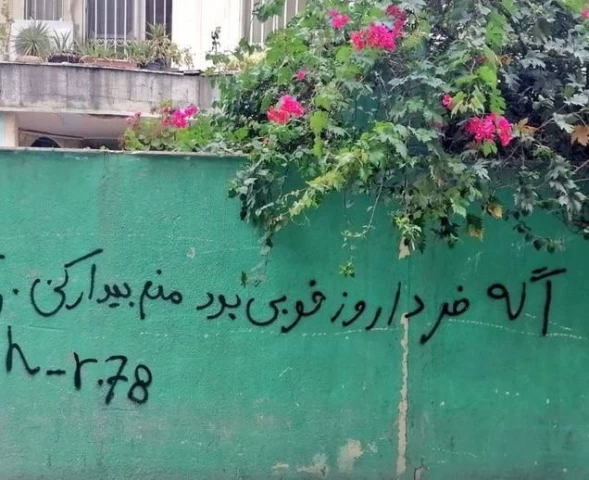 اگه فردا روز خوبی بود منم بیدار کن.
h-r.78